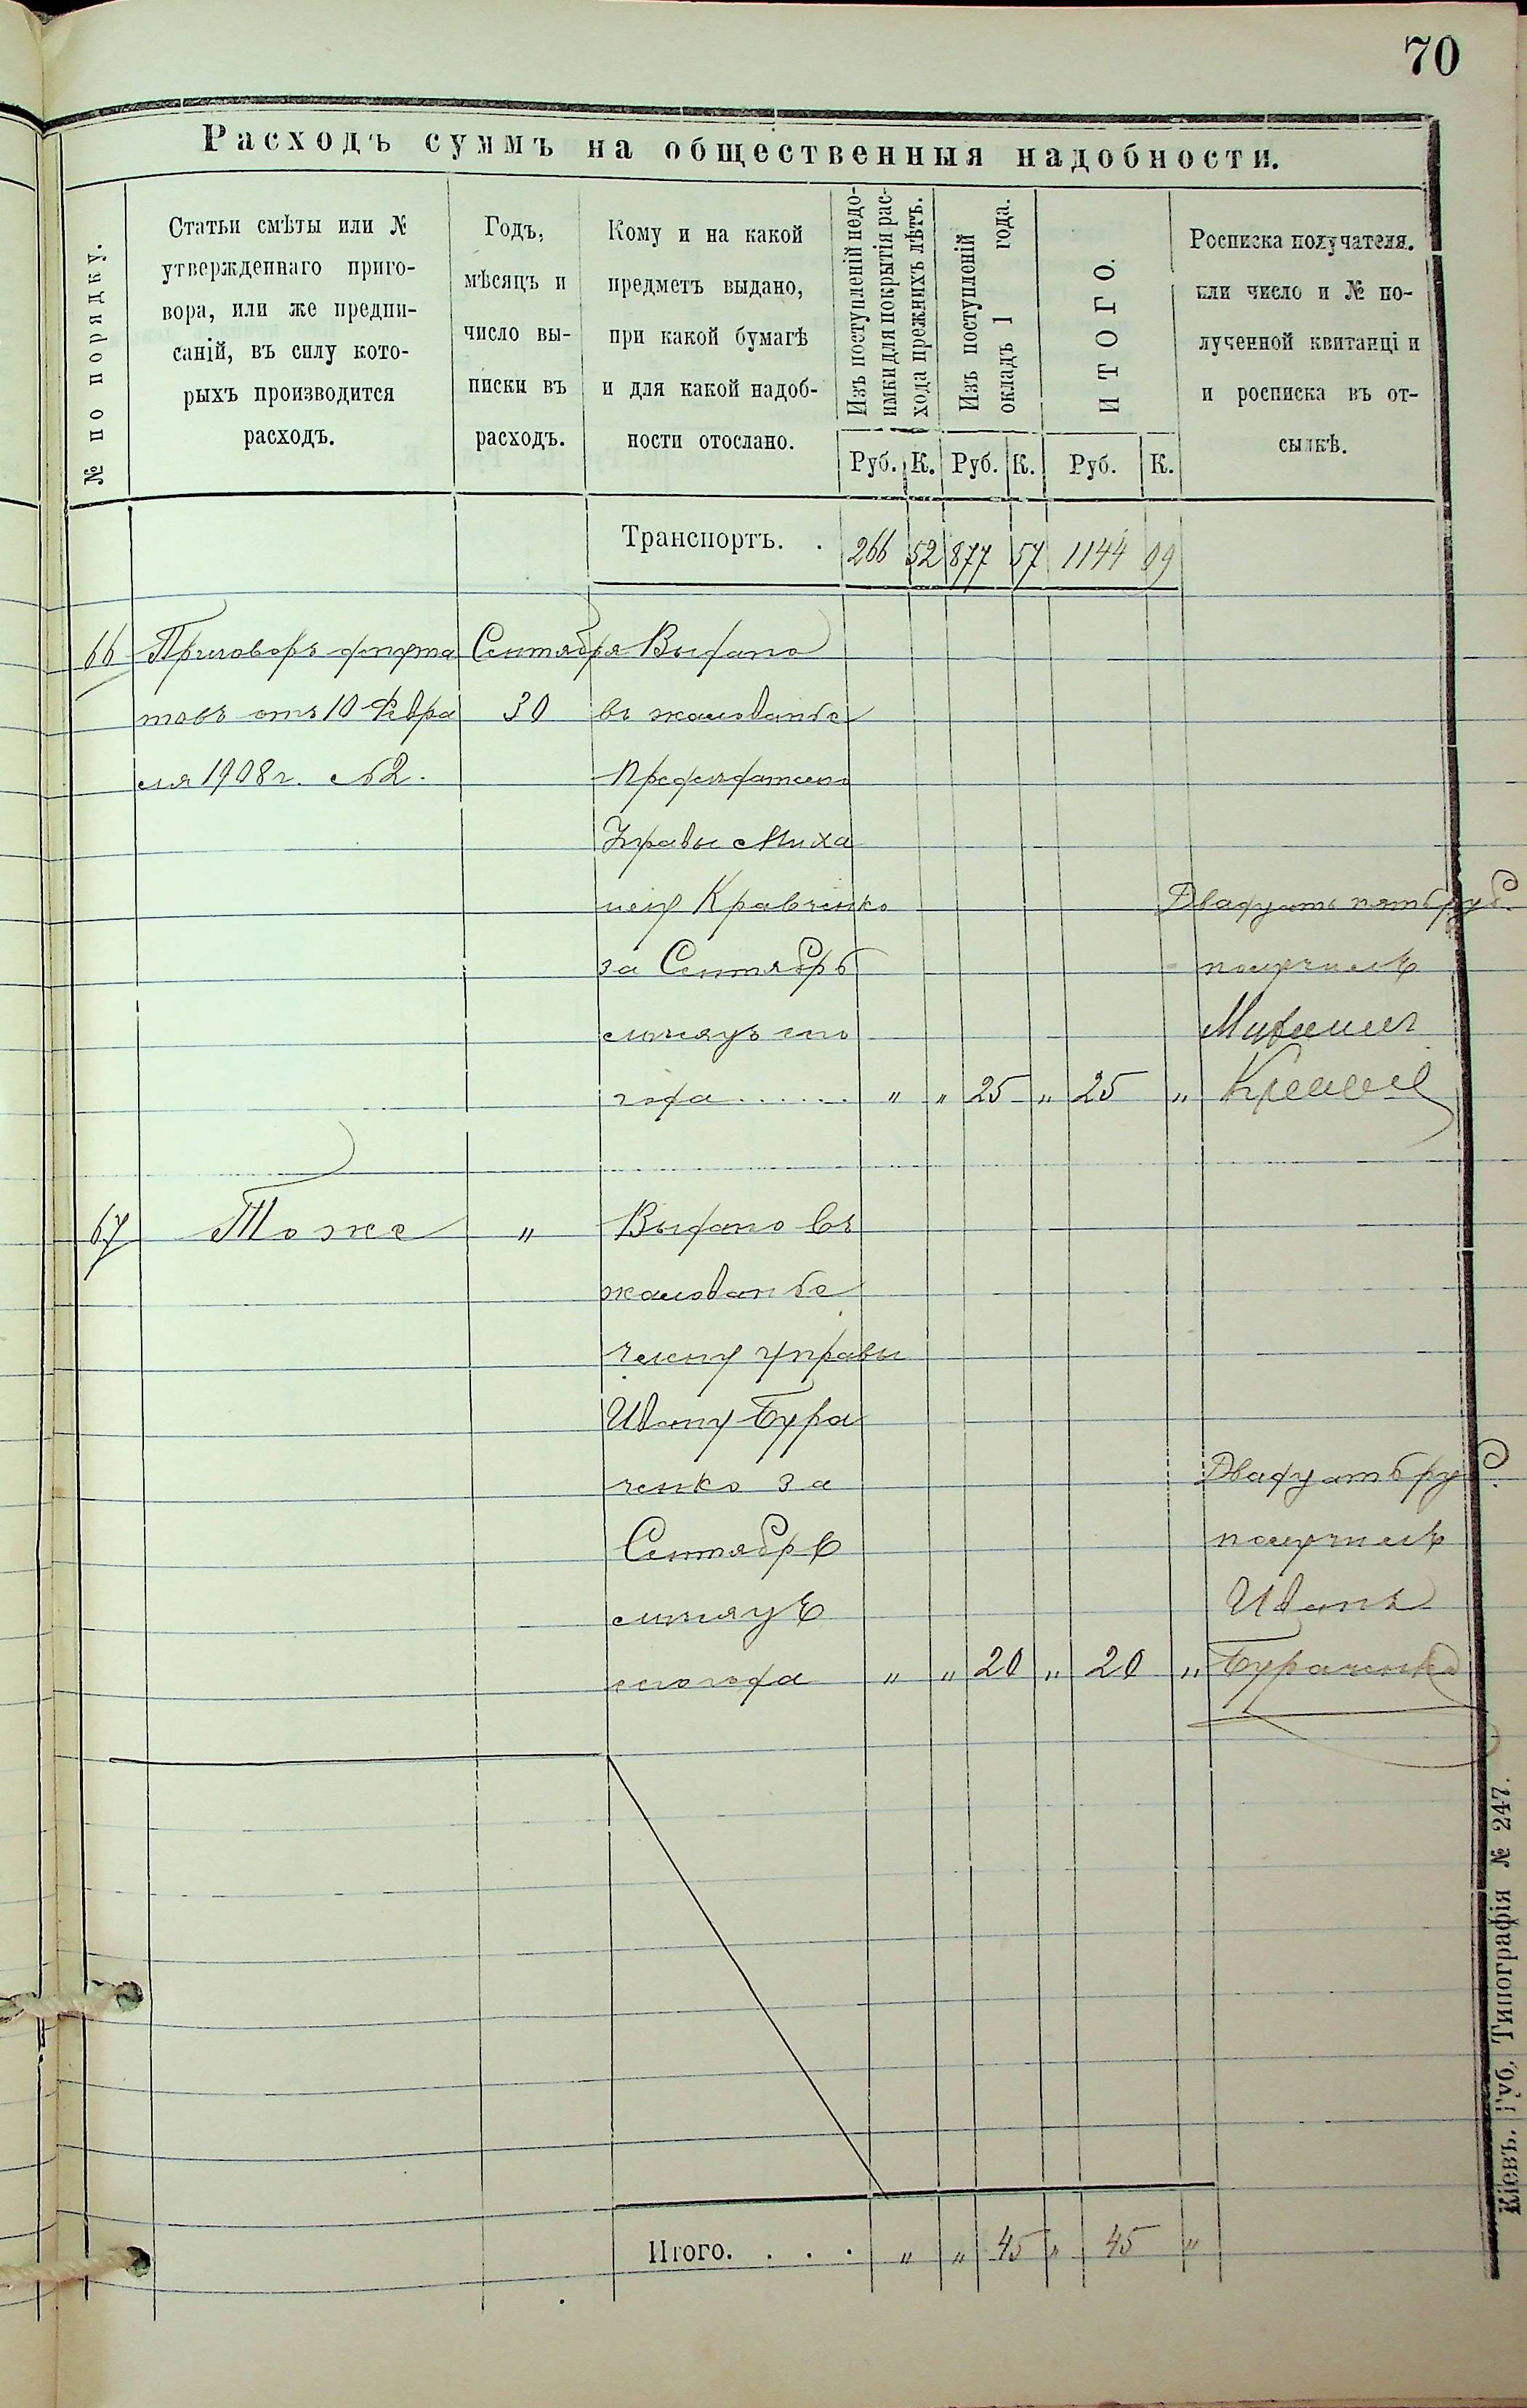 70
Расходъ суммъ на общественныя надобности.
№ по порядку.
Статьи смѣты или №
утвержденнаго приго-
вора, или же предпи-
саній, въ силу кото-
рыхъ производится
расходъ.
Годъ,
мѣсяцъ и
число вы-
писки въ
расходъ.
Кому и на какой
предметъ выдано,
при какой бумагѣ
и для какой надоб-
ности отослано.
Изъ поступленій недо-
имки для покрытія рас-
хода прежнихъ лѣтъ.
Изъ поступленій
окладъ 1 года.
ИТОГО.
Росписка получателя.
или число и № по-
лученной квитанціи
и росписка въ от-
сылкѣ.
Руб. К. Руб. К. Руб. К.
Транспортъ. . 266 52 877 57 1144 09
66 Приговоръ депута Сентября Выдано
товъ отъ 10 Февра 30 въ жалованье
ля 1908 г. №2. Председателю
Управы Миха
илу Кравченко Двадцать пять руб.
за Сентябрь получилъ
мѣсяцъ сего Михаилъ
года...... " " 25 " 25 "
67 Тоже " Выдано въ
жалованье
члену управы
Ивану Бура
ченко за Двадцать руб.
Сентябрь получилъ
мѣсяцъ Иванъ
сего года " " 20 " 20 " Бураченко
Итого. . . . " " 45 " 45 "
Кіевъ. Губ. Типографія № 247.